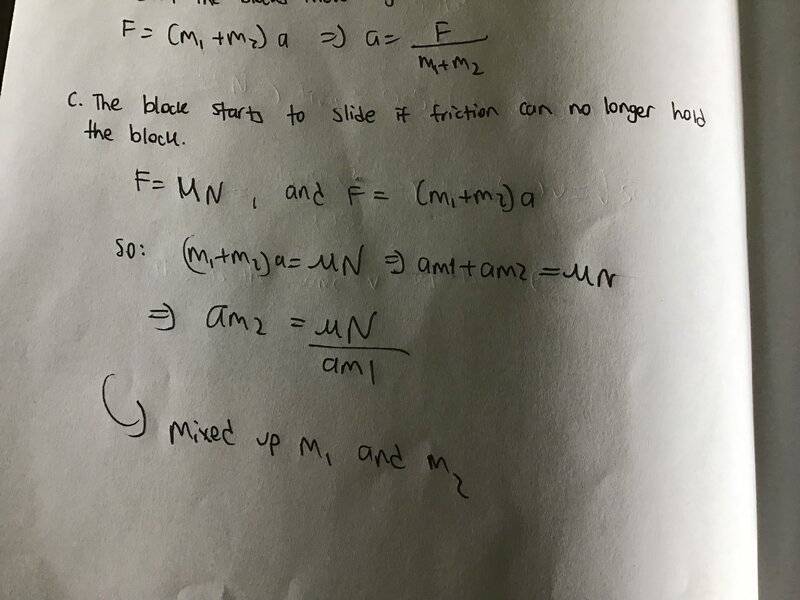 F = (m₁ + m₂) a ⇒ a = F / m₁+m₂
C. The block starts to slide if friction can no longer hold
the block.
F = μN , and F = (m₁+m₂) a
So: (m₁+m₂) a = μN ⇒ am1 + am2 = μN
⇒ am2 = μN / am1
↳ Mixed up m₁ and m₂